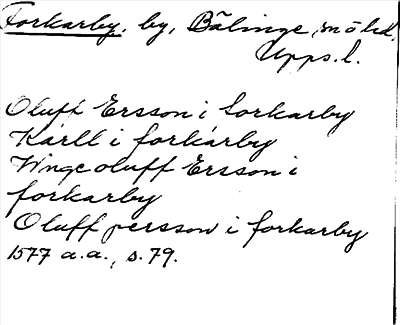 Forkarby, by, Bälinge sn ö hd,
Upps. l.
Oluff Ersson i forkarby
Karll i forkarby
Winge oluff Ersson i
forkarby
Oluff persson i forkarby
1577 a.a., s. 79.